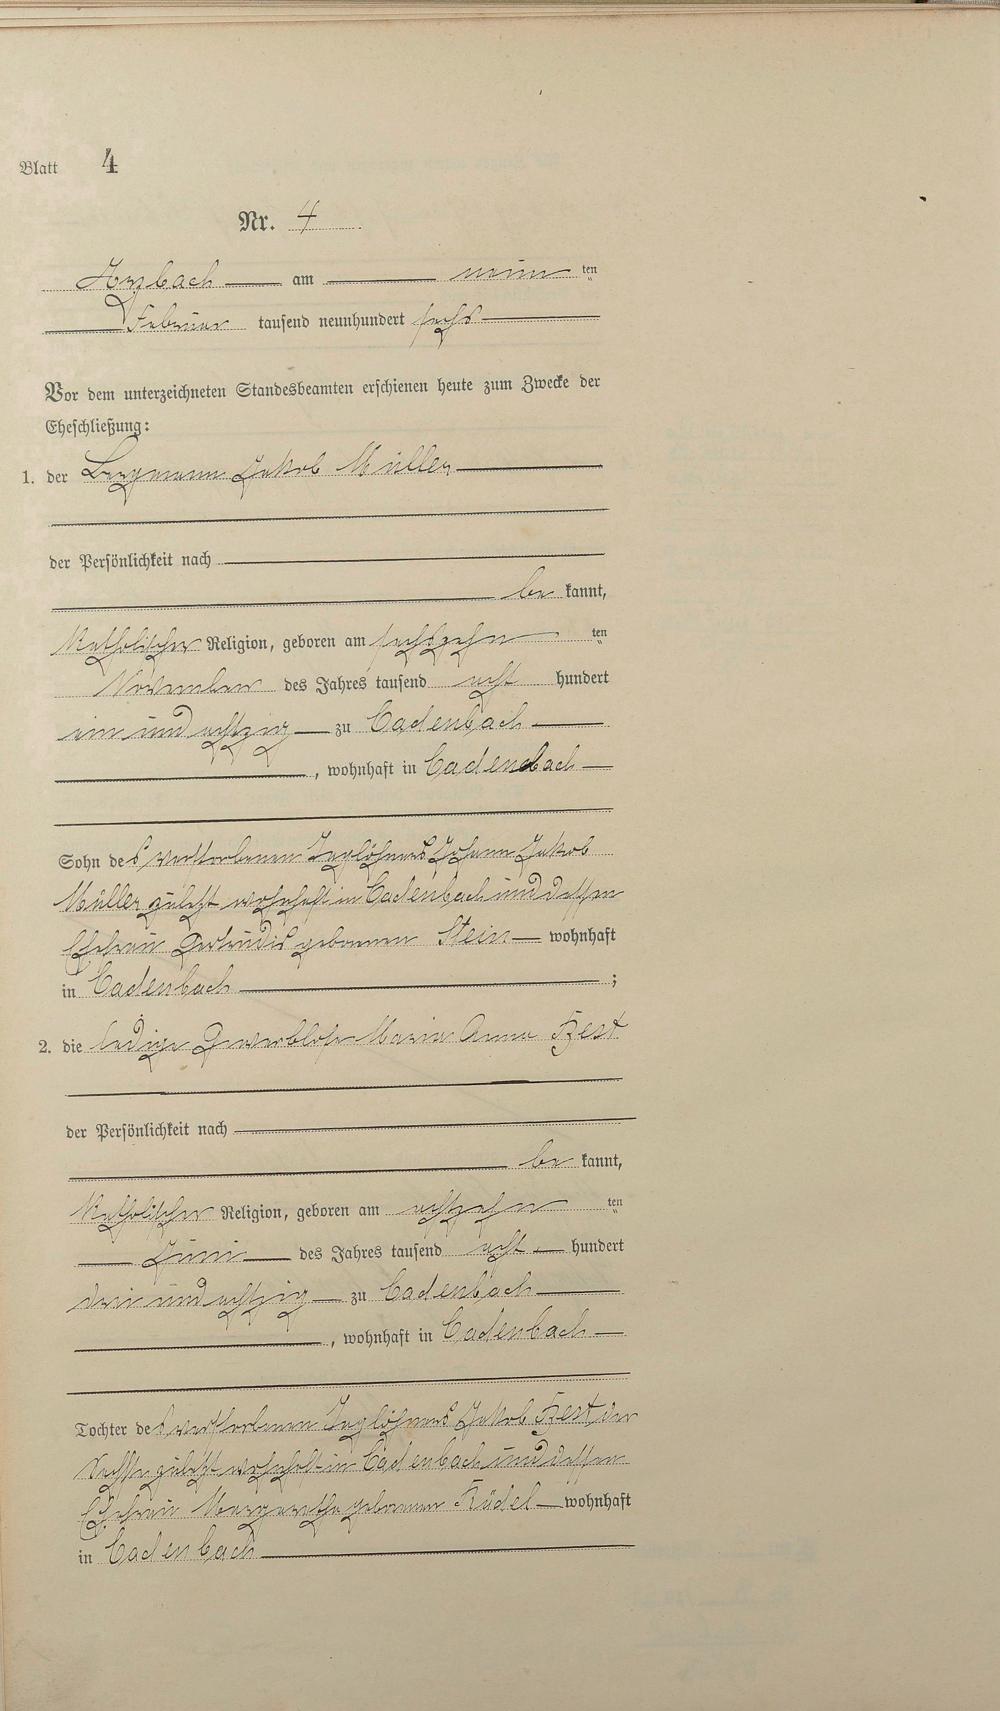 Blatt 4
Nr. 4
Arzbach am neun ten
Februar tausend neunhundert sechs
Vor dem unterzeichneten Standesbeamten erschienen heute zum Zwecke der
Eheschließung:
1. der Bergmann Jakob Müller
der Persönlichkeit nach
be kannt,
katholischer Religion, geboren am sechszehn ten
November des Jahres tausend acht hundert
ein und achtzig zu Cadenbach
, wohnhaft in Cadenbach
Sohn des verstorbenen Taglöhners Johann Jakob
Müller zuletzt wohnhaft in Cadenbach und dessen
Ehefrau Gertrudis geborenen Stein wohnhaft
in Cadenbach ;
2. die ledige Gewerblose Maria Anna
der Persönlichkeit nach
be kannt,
katholischer Religion, geboren am achtzehn ten
Juni des Jahres tausend acht hundert
drei und achtzig zu Cadenbach
, wohnhaft in Cadenbach
Tochter des verstorbenen Taglöhners Jakob der
Sechste zuletzt wohnhaft in Cadenbach und dessen
Ehefrau Margaretha geborenen wohnhaft
in Cadenbach